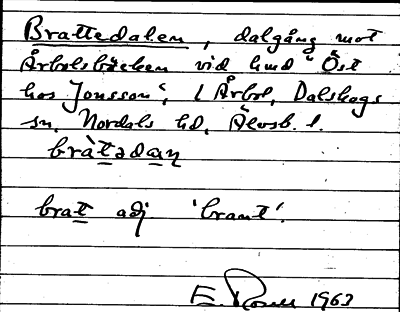 Brattedalen, dalgång mot
Årbolsbäcken vid hmd "Öst
hos Jonsson", i Årbol, Dalskogs
sn. Nordals hd, Älvsb. l.
bràtədan
brat adj 'brant'.
E. 1963